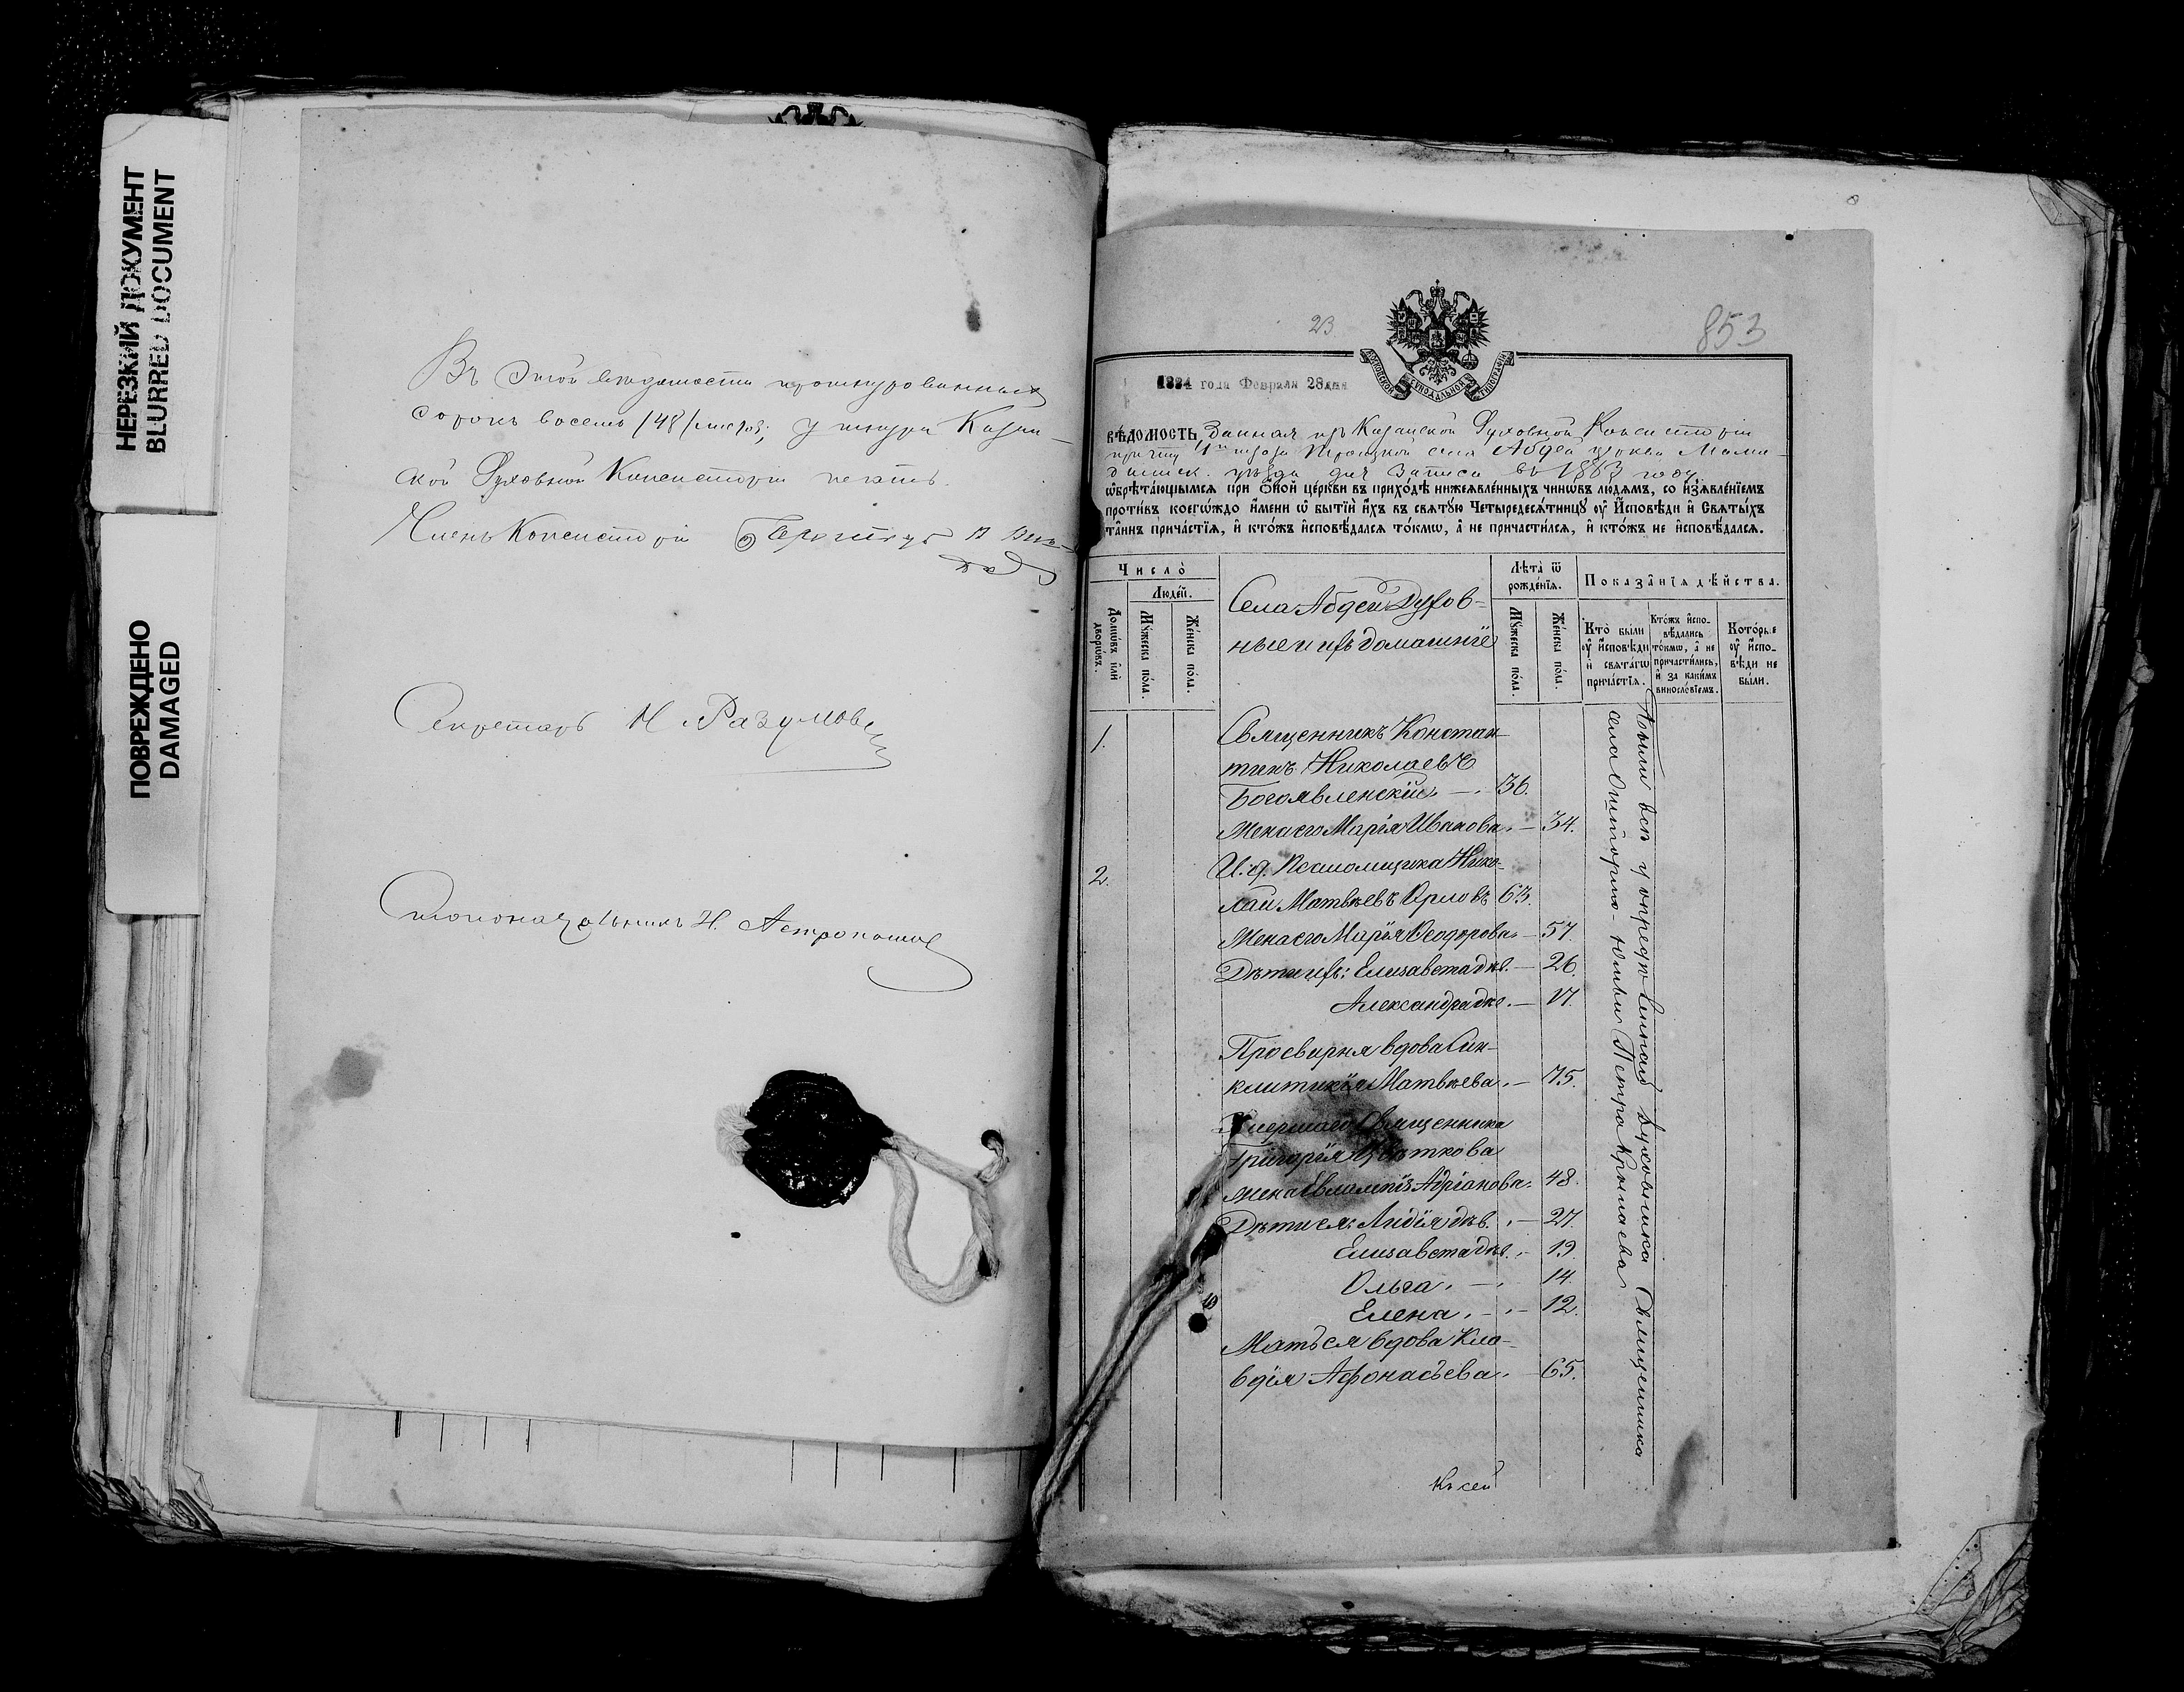 НЕРЕЗКИЙ ДОКУМЕНТ
BLURRED DOCUMENT
ПОВРЕЖДЕНО
DAMAGED
Въ этой вѣдомости прошнурованныхъ
сорокъ восемь /48/ листовъ, у шнура Казан-
ской Духовной Консисторіи печать.
Членъ Консисторіи
Секретарь Н. Разумов
Столоначальникъ Н.
23
853
МОСКОВСКОЙ СѴНОДАЛЬНОЙ ТИПОГРАФІИ
1884 года Февраля 28 дня
ВѢДОМОСТЬ, Данная изъ Казанской Духовной Консисторіи
причту Троицкой села Абдей церкви Мама-
дышск. уѣзда для записи въ 1883 году
ѡбрѣта́ющымсѧ при ѻ́ной це́ркви въ прихо́дѣ нижеѧвле́нныхъ чинѡ́въ лю́демъ, со и҆з̾ѧвле́нїемъ
проти́въ коегѡ́ждо и҆́мени ѡ҆ бытїи̂ и҆́хъ въ свѧту́ю Четыредесѧ́тницу ᲂу҆ И҆сповѣ́ди и҆ Свѧты́хъ
та̂инъ прича́стїѧ, и҆ кто́жъ и҆сповѣ́далсѧ то́кмѡ, а҆ не причасти́лсѧ, и҆ кто́жъ не и҆сповѣ́далсѧ.
Число̀
Людей.
Домѡ́въ и҆лѝ дворѡ́въ.
Мꙋ́жеска по́ла.
Же́нска по́ла.
Села Абдей Духов-
ные и ихъ домашніе
Лѣ́та ѿ рожде́нїѧ.
Мꙋ́жеска по́ла.
Же́нска по́ла.
Показа̂нїѧ дѣ́йства.
Кто̀ бы́ли ᲂу҆ и҆сповѣ́ди и҆ свѧта́гѡ прича́стїѧ.
Кто́жъ и҆спо-вѣ́дались то́кмѡ, а҆ не причасти́лись, и҆ за каки́мъ винослόвїемъ.
Кото́рые ᲂу҆ и҆спо-вѣ́ди не бы́ли.
1. Священникъ Констан-
тинъ Николаевъ
Богоявленскій. — 36.
Жена его Марія Иванова. — 34.
2. И. д. Псаломщика Нико-
лай Матвѣевъ Орловъ 63.
Жена его Марія Ѳеодорова. — 57.
Дѣти ихъ: Елисавета дѣв. — 26.
Александра дѣв. — 17.
Просвирня вдова Син-
клитикія Матвѣева. — 75.
Умершаго Священника
Григорія Цвѣткова
жена Евлампія Адріанова. 48.
Дѣти ея: Лидія дѣв. — 27.
Елисавета дѣв. — 19.
Ольга. — 14.
Елена. — 12.
Мать ея вдова Кла-
вдія Афонасьева. — 65.
Къ сей
были всѣ у опредѣленнаго духовника Священника
села Петра